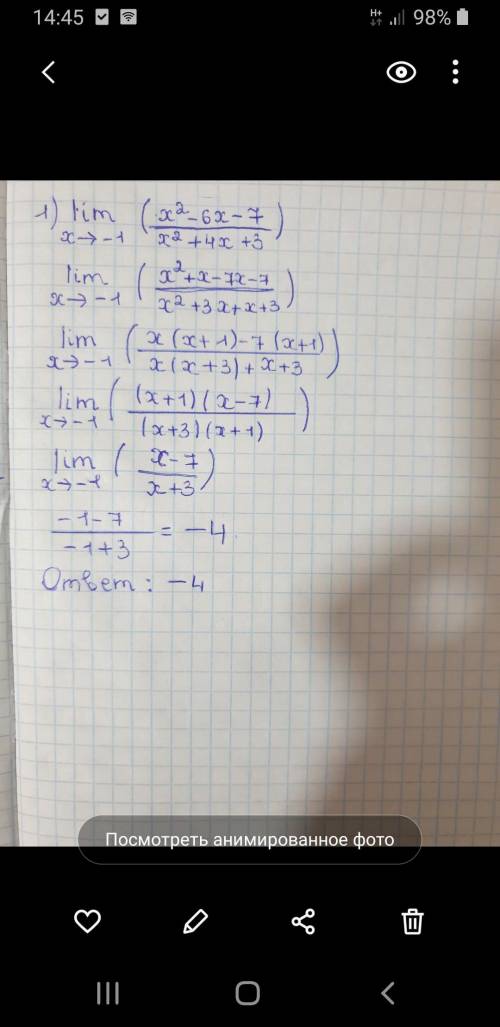 14:45 98%
1) lim (x²-6x-7 / x²+4x+3)
x→-1
lim (x²+x-7x-7 / x²+3x+x+3)
x→-1
lim (x(x+1)-7(x+1) / x(x+3)+x+3)
x→-1
lim ((x+1)(x-7) / (x+3)(x+1))
x→-1
lim (x-7 / x+3)
x→-1
-1-7 / -1+3 = -4
Ответ: -4
Посмотреть анимированное фото